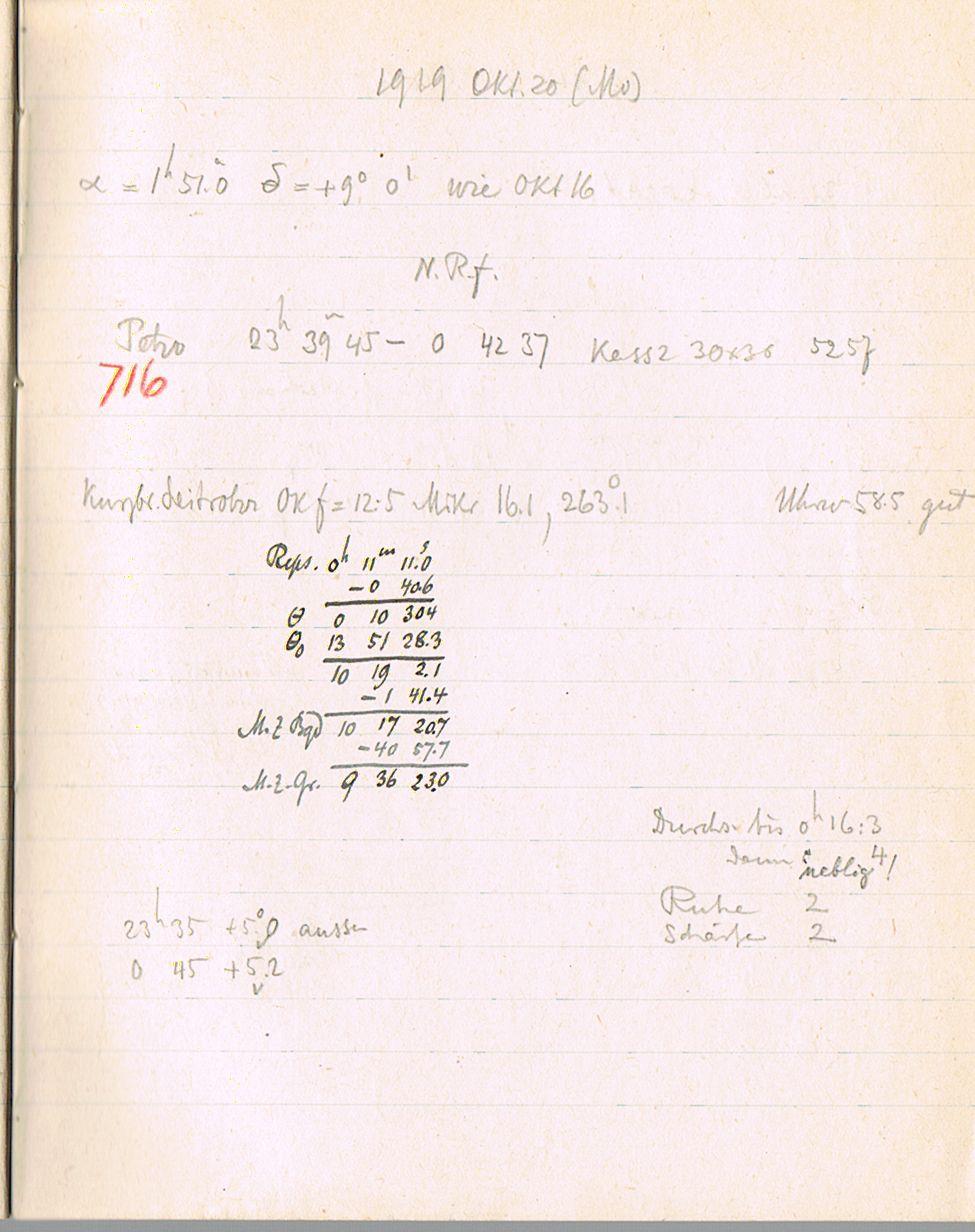 1919 Okt. 20 (Mo)
α = 1ʰ 51.ᵐ0 δ = +9° 0' wie Okt 16
N. R. f.
23ʰ 39ᵐ 45 – 0 42 37 Kass 2 30x30 5257
716
Okf = 12.5 Mikr 16.1, 263°.1 Uhrw 58.5 gut
Reps. 0ʰ 11ᵐ 11.ˢ0
– 0 40.6
θ 0 10 30.4
θ₀ 13 51 28.3
10 19 2.1
– 1 41.4
M.Z. Bgd 10 17 20.7
– 40 57.7
M.Z. Gr. 9 36 23.0
Durchs. bis 0ʰ 16.3
dann neblig 4!
Ruhe 2
Schärfe 2
23ʰ 35 +5.°0 aussen
0 45 +5.2